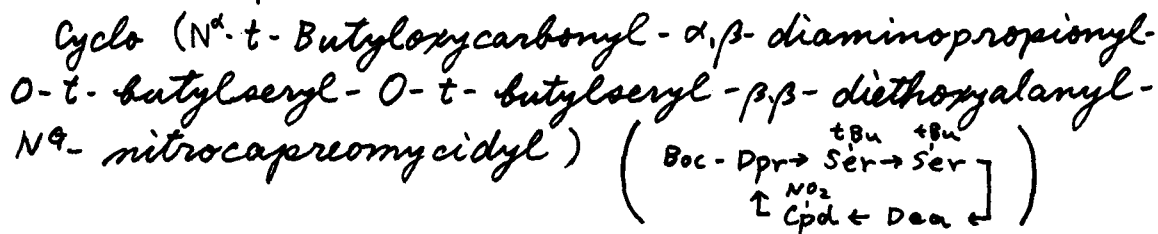 Cyclo (Nα-t-Butyloxycarbonyl-α,β-diaminopropionyl-
O-t-butylseryl-O-t-butylseryl-β,β-diethoxyalanyl-
tBu tBu
NG-nitrocapreomycidyl) ( Boc-Dpr→Ser→Ser
↑ NO2
Cpd ← Dea ← )